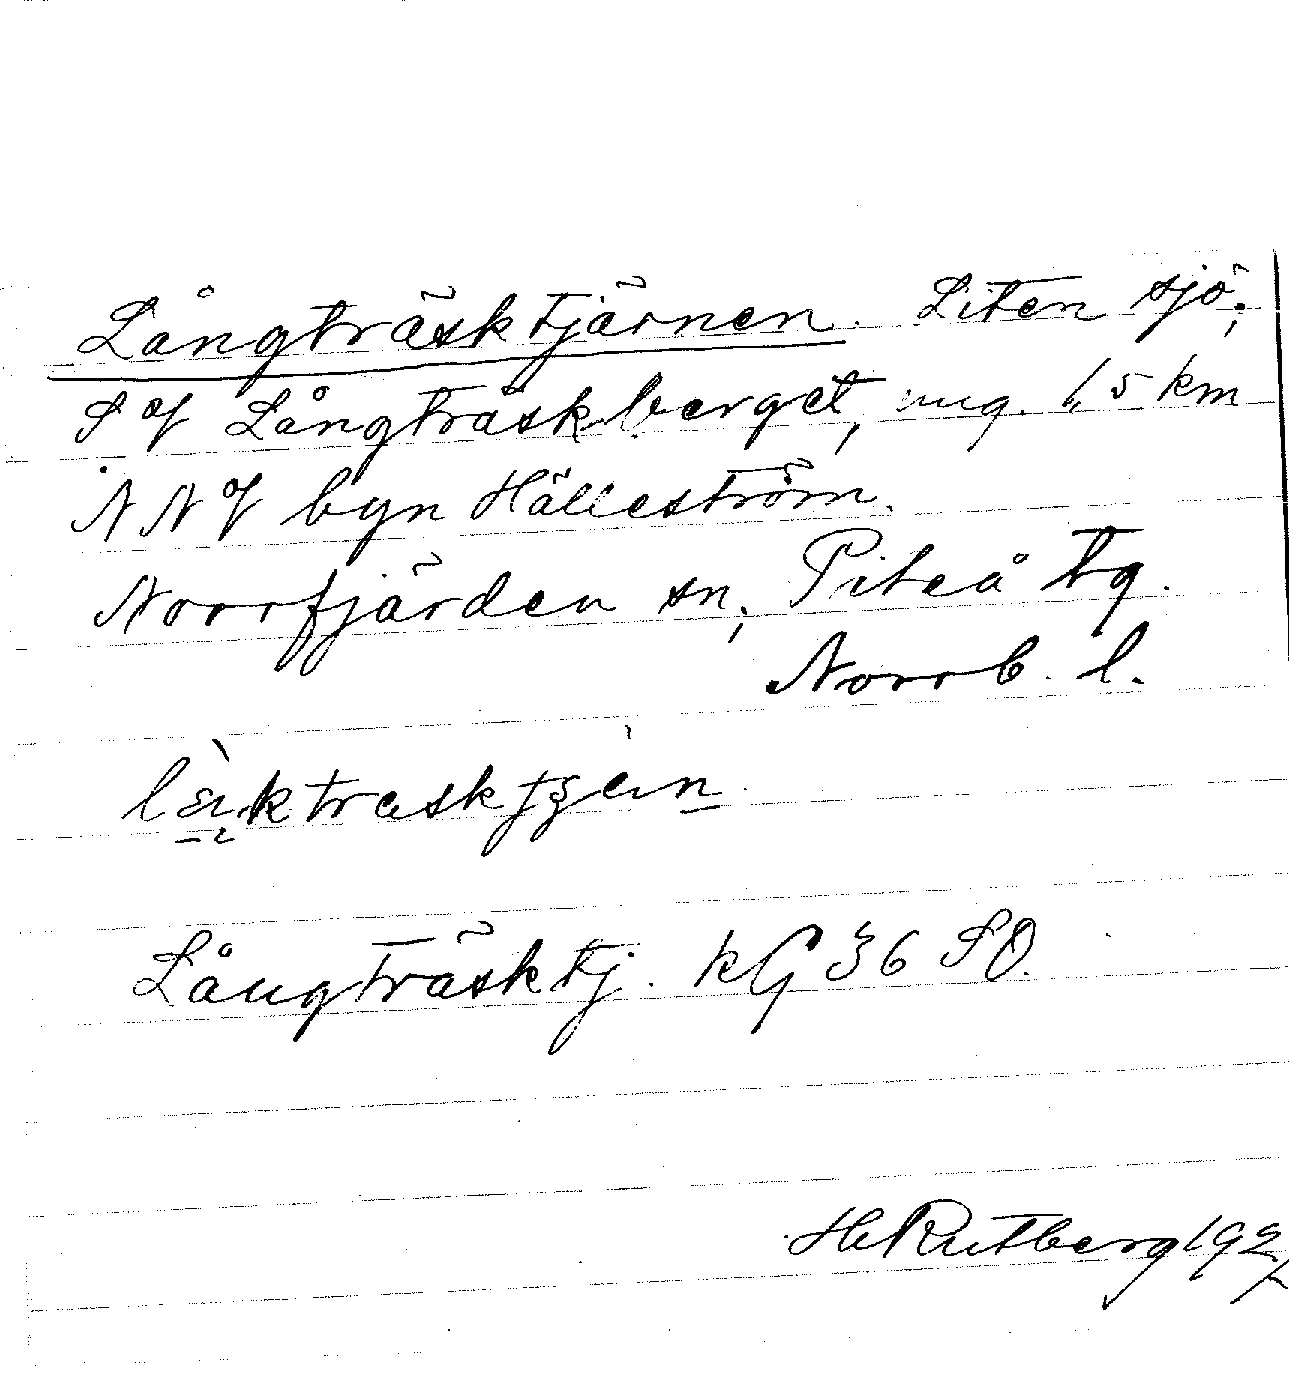 Långträsktjärnen. Liten sjö;
S of Långträskberget, ung. 1,5 km
NN of byn Hälleström.
Norrfjärden sn; Piteå tg.
Norrb. l.
Långträsktj. KG 36 SO.
H Rutberg 192